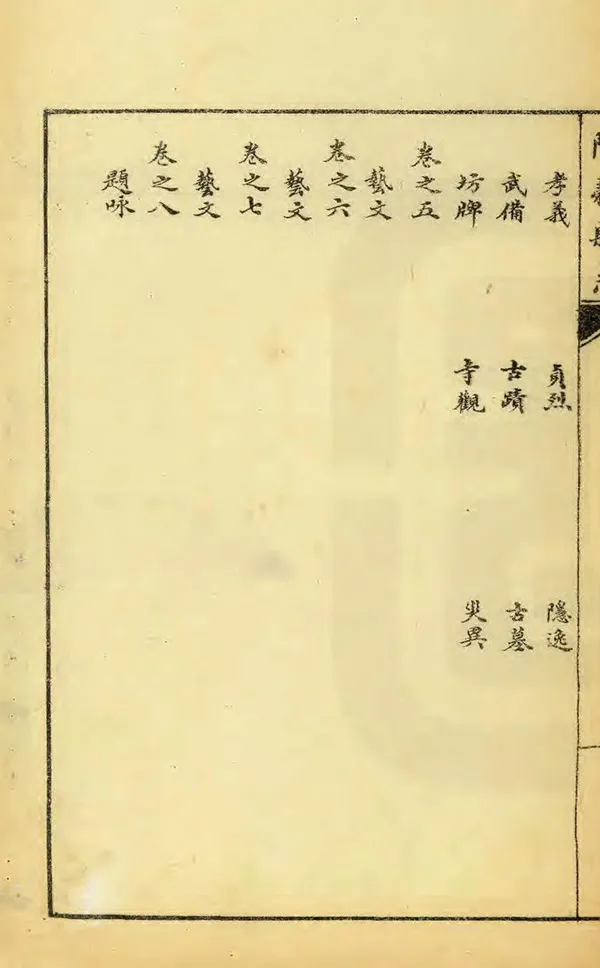 孝義 貞烈 隱逸
武備 古蹟 古墓
坊牌 寺觀 災異
卷之五
藝文
卷之六
藝文
卷之七
藝文
卷之八
題咏